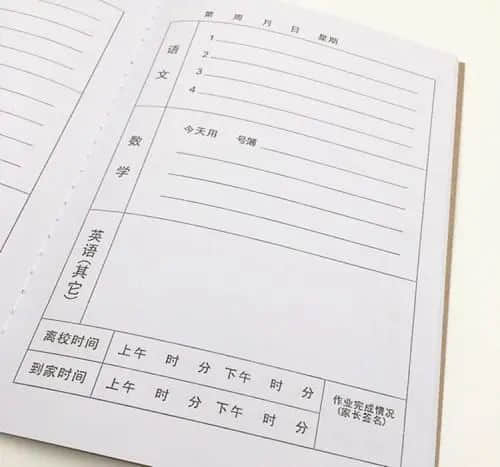 第 周 月 日 星期
语文
1
2
3
4
数学
今天用 号簿
英语(其它)
离校时间 上午 时 分 下午 时 分
到家时间 上午 时 分 下午 时 分
作业完成情况
(家长签名)